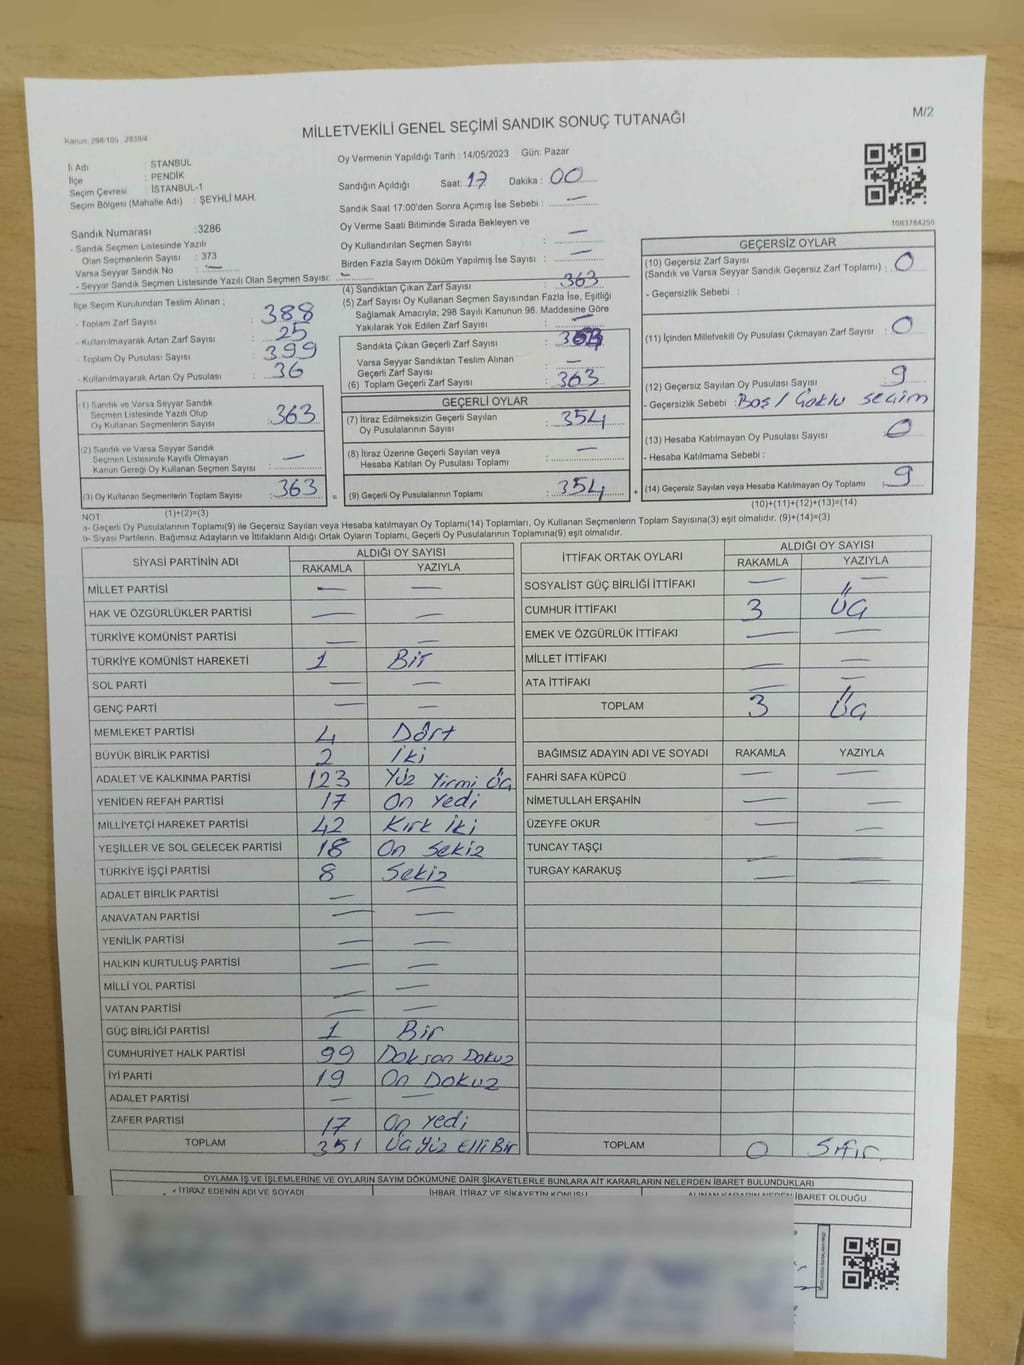 M/2
Kanun: 298/105 , 2839/4
MİLLETVEKİLİ GENEL SEÇİMİ SANDIK SONUÇ TUTANAĞI
İl Adı : İSTANBUL
İlçe : PENDİK
Seçim Çevresi : İSTANBUL-1
Seçim Bölgesi (Mahalle Adı) : ŞEYHLİ MAH.
Oy Vermenin Yapıldığı Tarih : 14/05/2023 Gün: Pazar
Sandığın Açıldığı Saat: 17 Dakika : 00
Sandık Saat 17:00'den Sonra Açımış İse Sebebi : —
Oy Verme Saati Bitiminde Sırada Bekleyen ve
Oy Kullandırılan Seçmen Sayısı : —
Birden Fazla Sayım Döküm Yapılmış İse Sayısı : —
1083784256
Sandık Numarası :3286
- Sandık Seçmen Listesinde Yazılı
Olan Seçmenlerin Sayısı : 373
Varsa Seyyar Sandık No : —
- Seyyar Sandık Seçmen Listesinde Yazılı Olan Seçmen Sayısı: —
İlçe Seçim Kurulundan Teslim Alınan ;
- Toplam Zarf Sayısı : 388
- Kullanılmayarak Artan Zarf Sayısı : 25
- Toplam Oy Pusulası Sayısı : 399
- Kullanılmayarak Artan Oy Pusulası : 36
(1) Sandık ve Varsa Seyyar Sandık
Seçmen Listesinde Yazılı Olup
Oy Kullanan Seçmenlerin Sayısı : 363
(2) Sandık ve Varsa Seyyar Sandık
Seçmen Listesinde Kayıtlı Olmayan
Kanun Gereği Oy Kullanan Seçmen Sayısı : —
(3) Oy Kullanan Seçmenlerin Toplam Sayısı : 363
(1)+(2)=(3)
(4) Sandıktan Çıkan Zarf Sayısı : 363
(5) Zarf Sayısı Oy Kullanan Seçmen Sayısından Fazla İse, Eşitliği
Sağlamak Amacıyla; 298 Sayılı Kanunun 98. Maddesine Göre
Yakılarak Yok Edilen Zarf Sayısı : —
Sandıkta Çıkan Geçerli Zarf Sayısı :
Varsa Seyyar Sandıktan Teslim Alınan
Geçerli Zarf Sayısı : —
(6) Toplam Geçerli Zarf Sayısı : 363
GEÇERLİ OYLAR
(7) İtiraz Edilmeksizin Geçerli Sayılan
Oy Pusulalarının Sayısı : 354
(8) İtiraz Üzerine Geçerli Sayılan veya
Hesaba Katılan Oy Pusulası Toplamı : —
= (9) Geçerli Oy Pusulalarının Toplamı : 354 +
GEÇERSİZ OYLAR
(10) Geçersiz Zarf Sayısı
(Sandık ve Varsa Seyyar Sandık Geçersiz Zarf Toplamı) : 0
- Geçersizlik Sebebi :
(11) İçinden Milletvekili Oy Pusulası Çıkmayan Zarf Sayısı : 0
(12) Geçersiz Sayılan Oy Pusulası Sayısı : 9
- Geçersizlik Sebebi : Boş / Çoklu seçim
(13) Hesaba Katılmayan Oy Pusulası Sayısı : 0
- Hesaba Katılmama Sebebi :
(14) Geçersiz Sayılan veya Hesaba Katılmayan Oy Toplamı : 9
(10)+(11)+(12)+(13)=(14)
NOT:
a- Geçerli Oy Pusulalarının Toplamı(9) ile Geçersiz Sayılan veya Hesaba katılmayan Oy Toplamı(14) Toplamları, Oy Kullanan Seçmenlerin Toplam Sayısına(3) eşit olmalıdır. (9)+(14)=(3)
b- Siyasi Partilerin, Bağımsız Adayların ve İttifakların Aldığı Ortak Oyların Toplamı, Geçerli Oy Pusulalarının Toplamına(9) eşit olmalıdır.
SİYASİ PARTİNİN ADI ALDIĞI OY SAYISI
RAKAMLA YAZIYLA
MİLLET PARTİSİ — —
HAK VE ÖZGÜRLÜKLER PARTİSİ — —
TÜRKİYE KOMÜNİST PARTİSİ — —
TÜRKİYE KOMÜNİST HAREKETİ 1 Bir
SOL PARTİ — —
GENÇ PARTİ — —
MEMLEKET PARTİSİ 4 Dört
BÜYÜK BİRLİK PARTİSİ 2 İki
ADALET VE KALKINMA PARTİSİ 123 Yüz Yirmi Üç
YENİDEN REFAH PARTİSİ 17 On Yedi
MİLLİYETÇİ HAREKET PARTİSİ 42 Kırk İki
YEŞİLLER VE SOL GELECEK PARTİSİ 18 On Sekiz
TÜRKİYE İŞÇİ PARTİSİ 8 Sekiz
ADALET BİRLİK PARTİSİ — —
ANAVATAN PARTİSİ — —
YENİLİK PARTİSİ — —
HALKIN KURTULUŞ PARTİSİ — —
MİLLİ YOL PARTİSİ — —
VATAN PARTİSİ — —
GÜÇ BİRLİĞİ PARTİSİ 1 Bir
CUMHURİYET HALK PARTİSİ 99 Doksan Dokuz
İYİ PARTİ 19 On Dokuz
ADALET PARTİSİ — —
ZAFER PARTİSİ 17 On Yedi
TOPLAM 351 Üç Yüz Elli Bir
İTTİFAK ORTAK OYLARI ALDIĞI OY SAYISI
RAKAMLA YAZIYLA
SOSYALİST GÜÇ BİRLİĞİ İTTİFAKI — —
CUMHUR İTTİFAKI 3 Üç
EMEK VE ÖZGÜRLÜK İTTİFAKI — —
MİLLET İTTİFAKI — —
ATA İTTİFAKI — —
TOPLAM 3 Üç
BAĞIMSIZ ADAYIN ADI VE SOYADI RAKAMLA YAZIYLA
FAHRİ SAFA KÜPCÜ — —
NİMETULLAH ERŞAHİN — —
ÜZEYFE OKUR — —
TUNCAY TAŞÇI — —
TURGAY KARAKUŞ — —
TOPLAM 0 Sıfır
OYLAMA İŞ VE İŞLEMLERİNE VE OYLARIN SAYIM DÖKÜMÜNE DAİR ŞİKAYETLERLE BUNLARA AİT KARARLARIN NELERDEN İBARET BULUNDUKLARI
İTİRAZ EDENİN ADI VE SOYADI İHBAR, İTİRAZ VE ŞİKAYETİN KONUSU ALINAN KARARIN NEDEN İBARET OLDUĞU